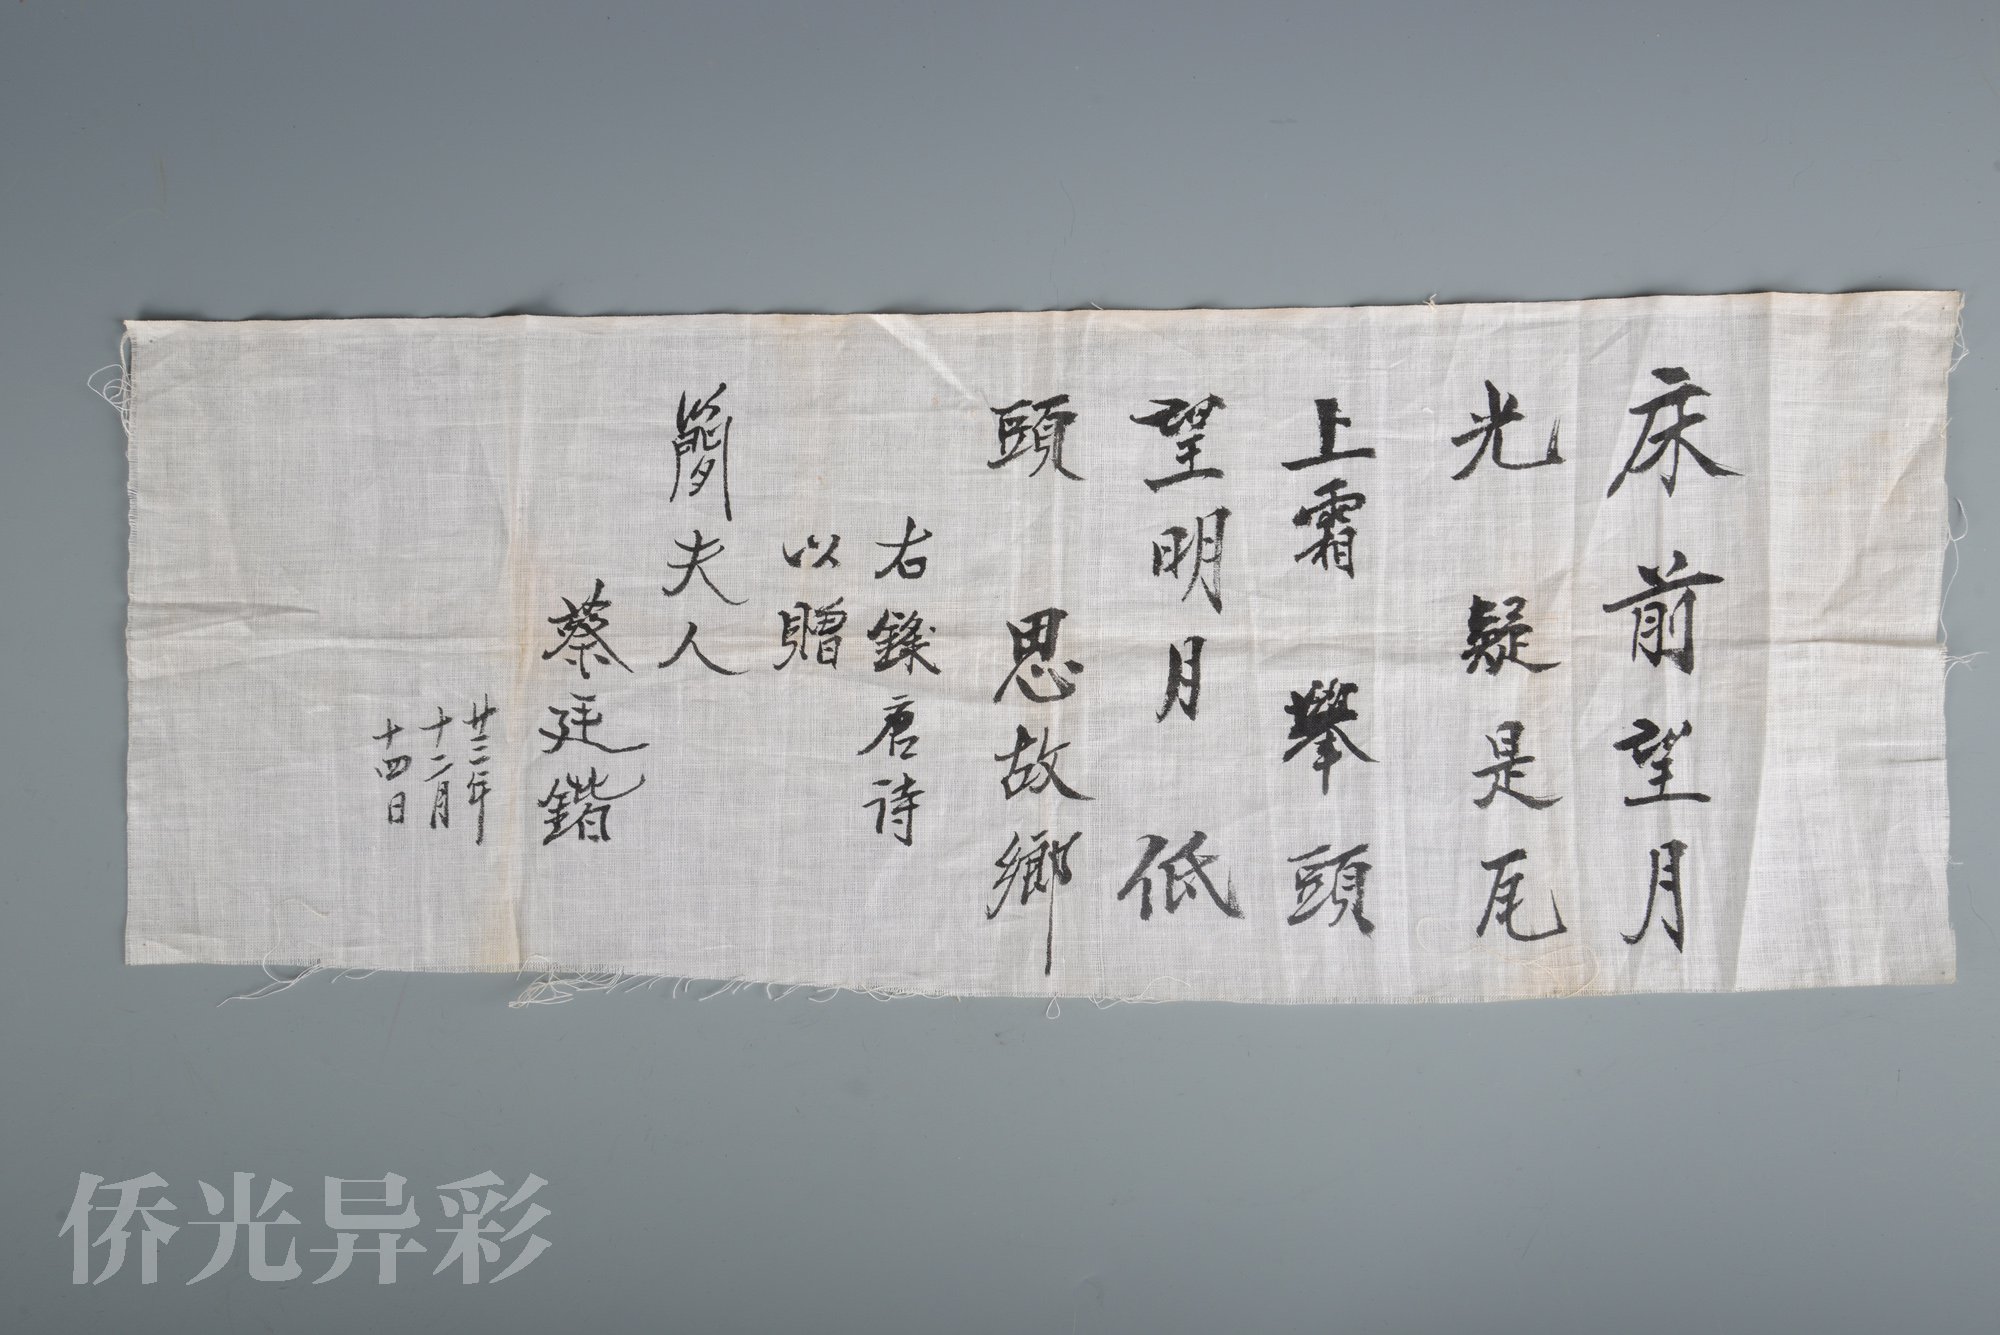 床前望月
光疑是瓦
上霜舉頭
望明月低
頭思故鄉
右錄唐詩
以贈
簡夫人
蔡廷鍇
廿三年
十二月
十四日
侨光异彩